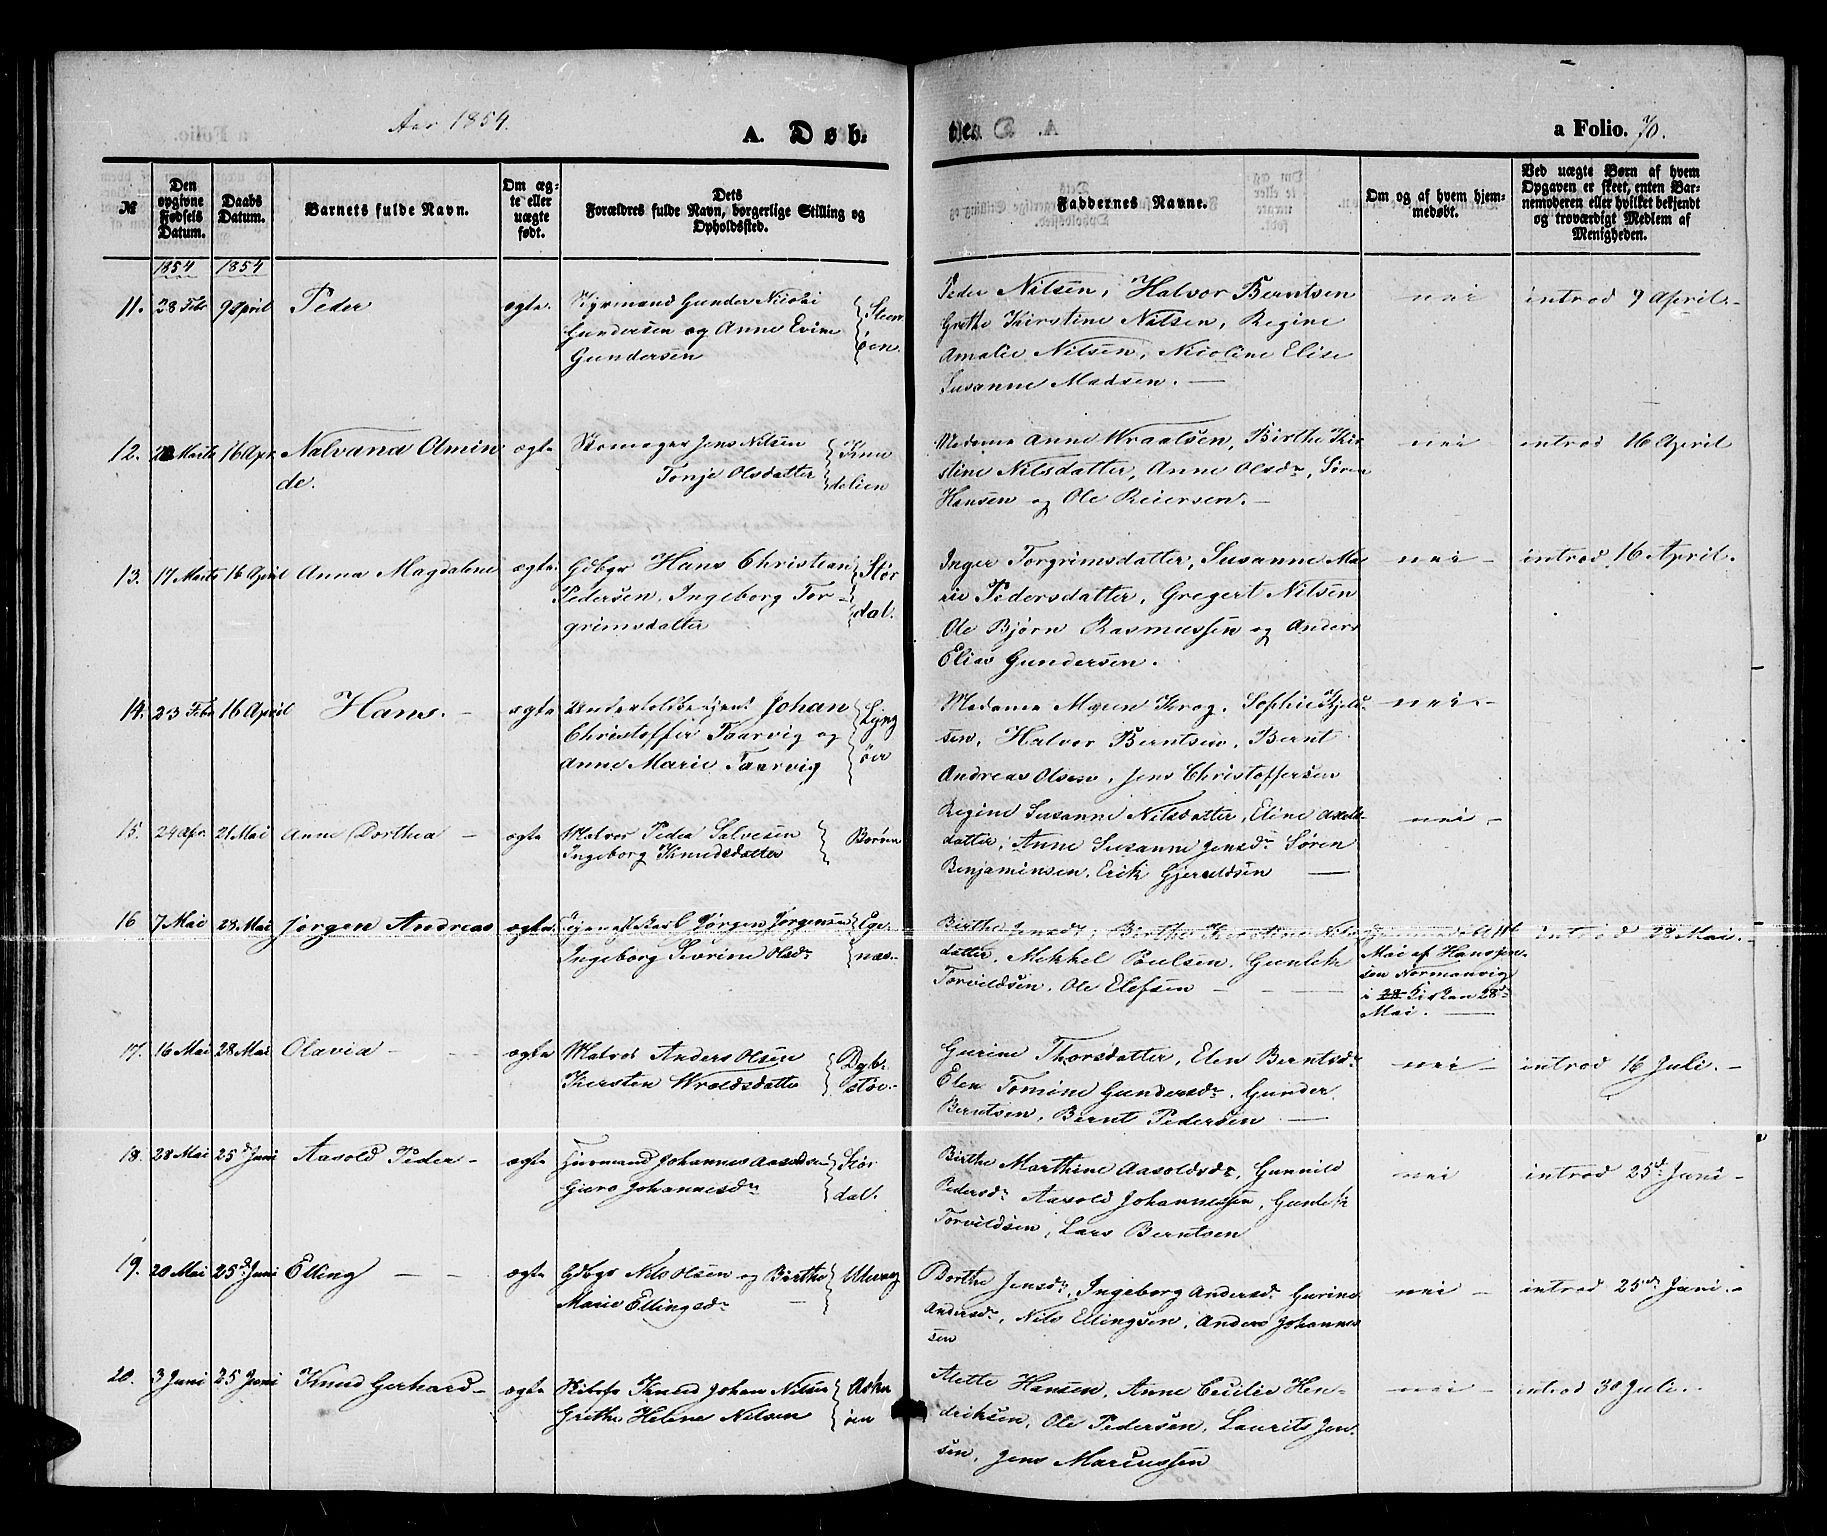 Aar 1854.
A. Døb-
te.
a Folio. 70.
№
Den opgivne Fødsels Datum.
Daabs Datum.
Barnets fulde Navn.
Om ægte eller uægte født.
Dets Forældres fulde Navn, borgerlige Stilling og Opholdssted.
Faddernes Navne.
Om og af hvem hjemmedøbt.
Ved uægte Børn af hvem Opgaven er skeet, enten Barnemoderen eller hvilket bekjendt og troværdigt Medlem af Menigheden.
1854 1854
11. 28 Febr 9 April Peder ægte.
Gunder Nicolai
Gundersen og Anne Evine
Gundersen
Steen
öen.
Peder Nilsen, Halvor Berntsen
Grethe Kirstine Nilsen, Regine
Amalie Nilsen, Nicoline Elise
Susanne Madsen. —
nei introd 9 April. -
12. Marts 16 Apr. Nalvana Olmin
de.
ægte
Skomager Jens Nilsen
Tonje Olsdatter
dalien
Madame Anne Wraalsen, Birthe Kir
stine Nilsdatter, Anne Olsdr, Søren
Hansen og Ole Reiersen. -
nei introd 16 April
13. 17 Marts 16 April Anna Magdalene ægte
Gdbgr Hans Christian
Pedersen, Ingeborg Tor-
grimsdatter
Stør
dal.
Inger Torgrimsdatter, Susanne Ma
rie Pedersdatter, Gregert Nilsen
Ole Bjørn Rasmussen og Anders
Elias Gundersen.
nei - introd, 16 April.
14. 23 Febr 16 April Hans. - ægte
Johan
Christoffer Taarvig og
Anne Marie Taarvig
Lyng
öer
Madame Maren Krog, Sophie Kjeld-
sen, Halvor Berntsen, Bernt
Andreas Olsen, Jens Christoffersen
nei -
15. 24 Apr. 21 Mai Anne Dorthea - ægte
Matros Peder Salvesen
Ingeborg Knudsdatter
Borøen
Regine Susanne Nilsdatter, Eline Axels-
datter, Anne Susanne Jensdr Søren
Benjaminsen, Erik Gjeruldsen —
nei -
16 7 Mai 28 Mai Jørgen Andreas ægte.
Jørgen Jørgensen
Ingeborg Severine Olsdr
Ege
næs-
Birthe Jensdr, Birthe Kirstine Nils
datter, Mekkel Poulsen, Gunlek
Torvildsen, Ole Elefsen -
Mai af Hans Jen-
sen Normanvig
i Kirken 28de
Mai. —
introd 28 Mai. -
17. 16 Mai 28 Mai Olavia - ægte
Matros Anders Olsen
Kirsten Wroldsdatter
Dyb-
støe-
Gurine Thorsdatter, Elen Berntsdr
Elen Tomine Gundersdr, Gunder
Berntsen, Bernt Pedersen —
nei - introd 16 Juli. -
18. 28 Mai 25de Juni Aasold Peder - ægte
Huusmand Johannes Aasoldsen
Gjero Johannesdr
Stør
dal.
Birthe Marthine Aasoldsdr, Gunnild
Pedersdr Aasold Johannessen, Gunlek
Torvildsen, Lars Berntsen
nei introd 25de Juni -
19. 20 Mai 25de Juni Elling - - ægte
Gdbgr Nils Olsen og Birthe
Marie Ellingsdr
Dorthe Jensdr, Ingeborg Andersdr Gurine
Andersdr, Nils Ellingsen, Anders Johannes
sen
nei - introd 25de Juni. -
20. 3 Juni 25 Juni Knud Gerhard - ægte
Skibsfr Knud Johan Nilsen
Grethe Helene Nilsen
Askr
öen
Alette Hansen, Anne Cecilie Hen-
driksen, Ole Pedersen, Laurits Jen-
sen, Jens Marcussen
nei - introd 30 Juli. -